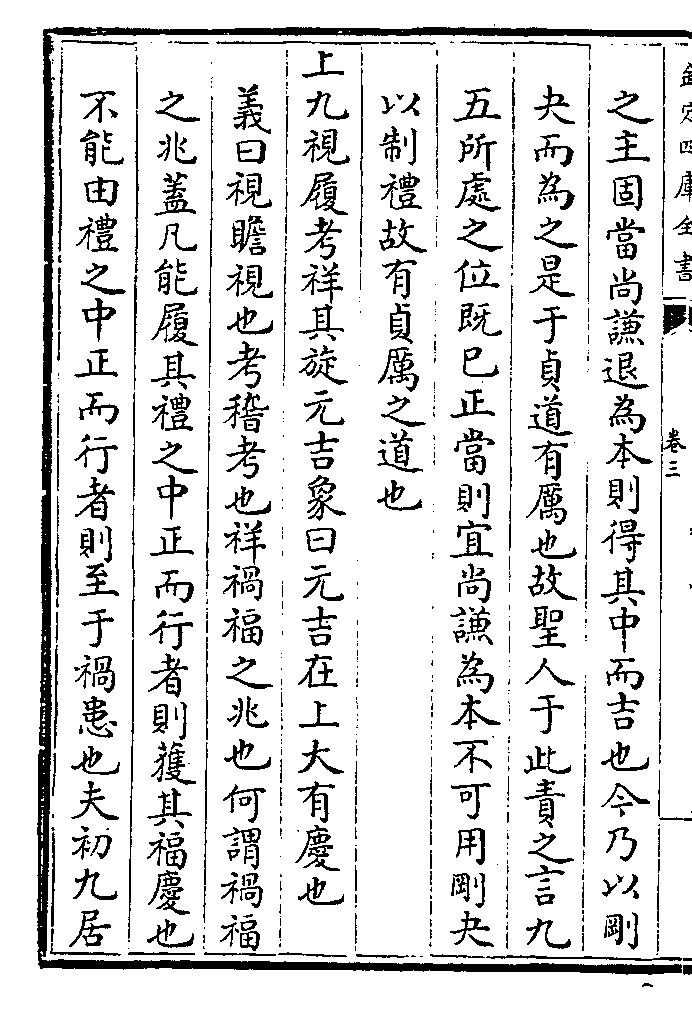 欽定四庫全書
卷三
之主固當尚謙退為本則得其中而吉也今乃以剛
夬而為之是于貞道有厲也故聖人于此責之言九
五所處之位既已正當則宜尚謙為本不可用剛夬
以制禮故有貞厲之道也
上九視履考祥其旋元吉象曰元吉在上大有慶也
義曰視瞻視也考稽考也祥禍福之兆也何謂禍福
之兆蓋凡能履其禮之中正而行者則獲其福慶也
不能由禮之中正而行者則至于禍患也夫初九居